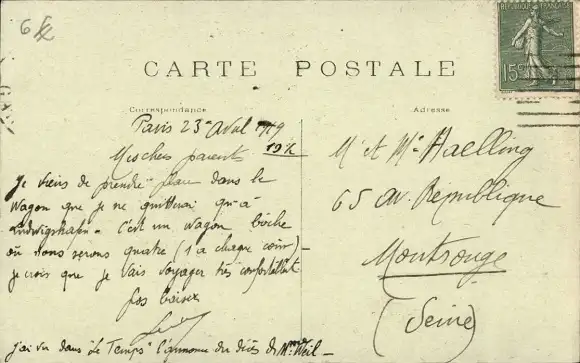 6f
CARTE POSTALE
REPUBLIQUE FRANÇAISE
15c
Correspondance
Adresse
Paris 23 Avril 1919
19h
Mes chers parents
Je viens de prendre place dans le
Wagon que je ne quitterai qu'à
Ludwigshafen - C'est un Wagon boche
où nous serons quatre (1 à chaque coin) -
je crois que je vais voyager très confortablt
Gros baisers
j'ai vu dans "Le Temps" l'annonce du décès de Mme Weil -
Mr et Me Haelling
65 av. République
Montrouge
(Seine)